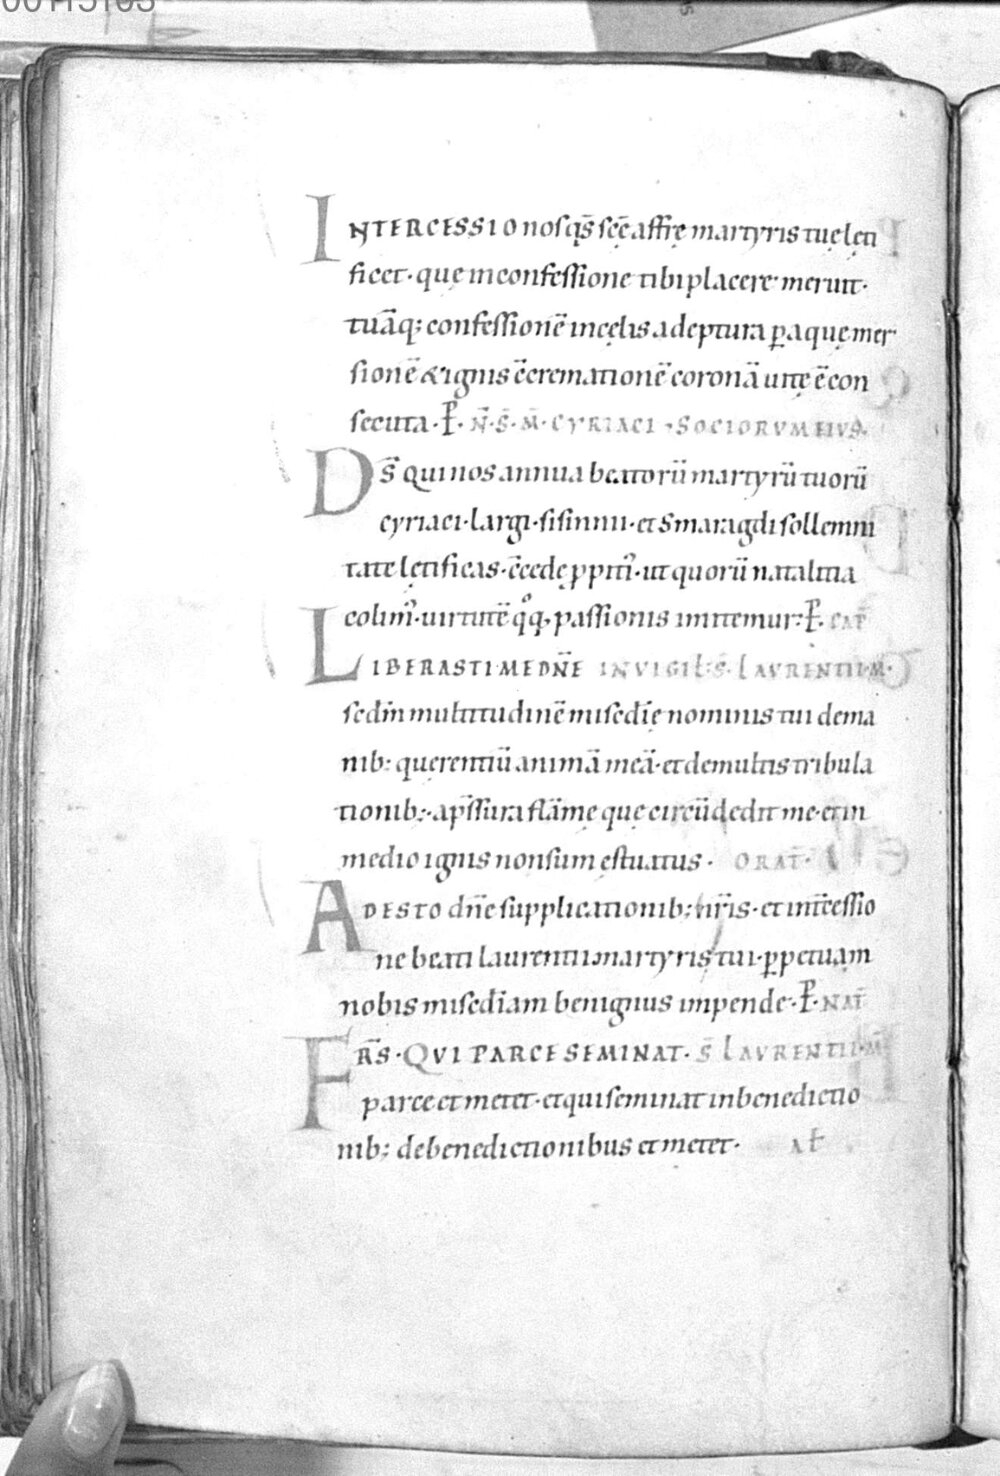 INTERCESSIO nos qs̄ sc̄ę affrę martyris tuę lęti
ficet · quę in confessione tibi placere meruit ·
tuāq; confessionē in cęlis adeptura p̱ aquę mer
sionē & ignis c̄crematione̅ coronā uitę ē con
secuta · P̄ · N̄ · S̄ · M̄ · CYRIACI · SOCIORVM EIVS ·
DS̄ qui nos annua beatorū martyrū tuorū
cyriaci · largi · sisinnii · et smaragdi sollemni
tate lętificas · c̄cede ꝓpiti᷒ · ut quorū natalitia
colim᷒ · uirtutē qͦq; passionis imitemur : P̄ · EAT̄
LIBERASTI ME DN̄E IN VIGIŁ : S̄ · LAVRENTII · M̄ ·
scdm̄ multitudinē misc̄dię nominis tui de ma
nib: quęrentiū animā meā · et de multis tribula
tionib: · a p̄ssura flāmę quę circūdedit me · et in
medio ignis non sum ęstuatus · ORAT̄ ·
ADESTO dn̄e supplicationib; nr̄is · et int̄cessio
ne beati laurentii martyris tui · p̱petuam
nobis misc̄diam benignus impende · P̄ · NAT̄
FRS̄ · QVI PARCE SEMINAT · S̄ LAVRENTII · M̄
parce et metet · et qui seminat in benedictio
nib; de benedictionibus et metet · AŁ